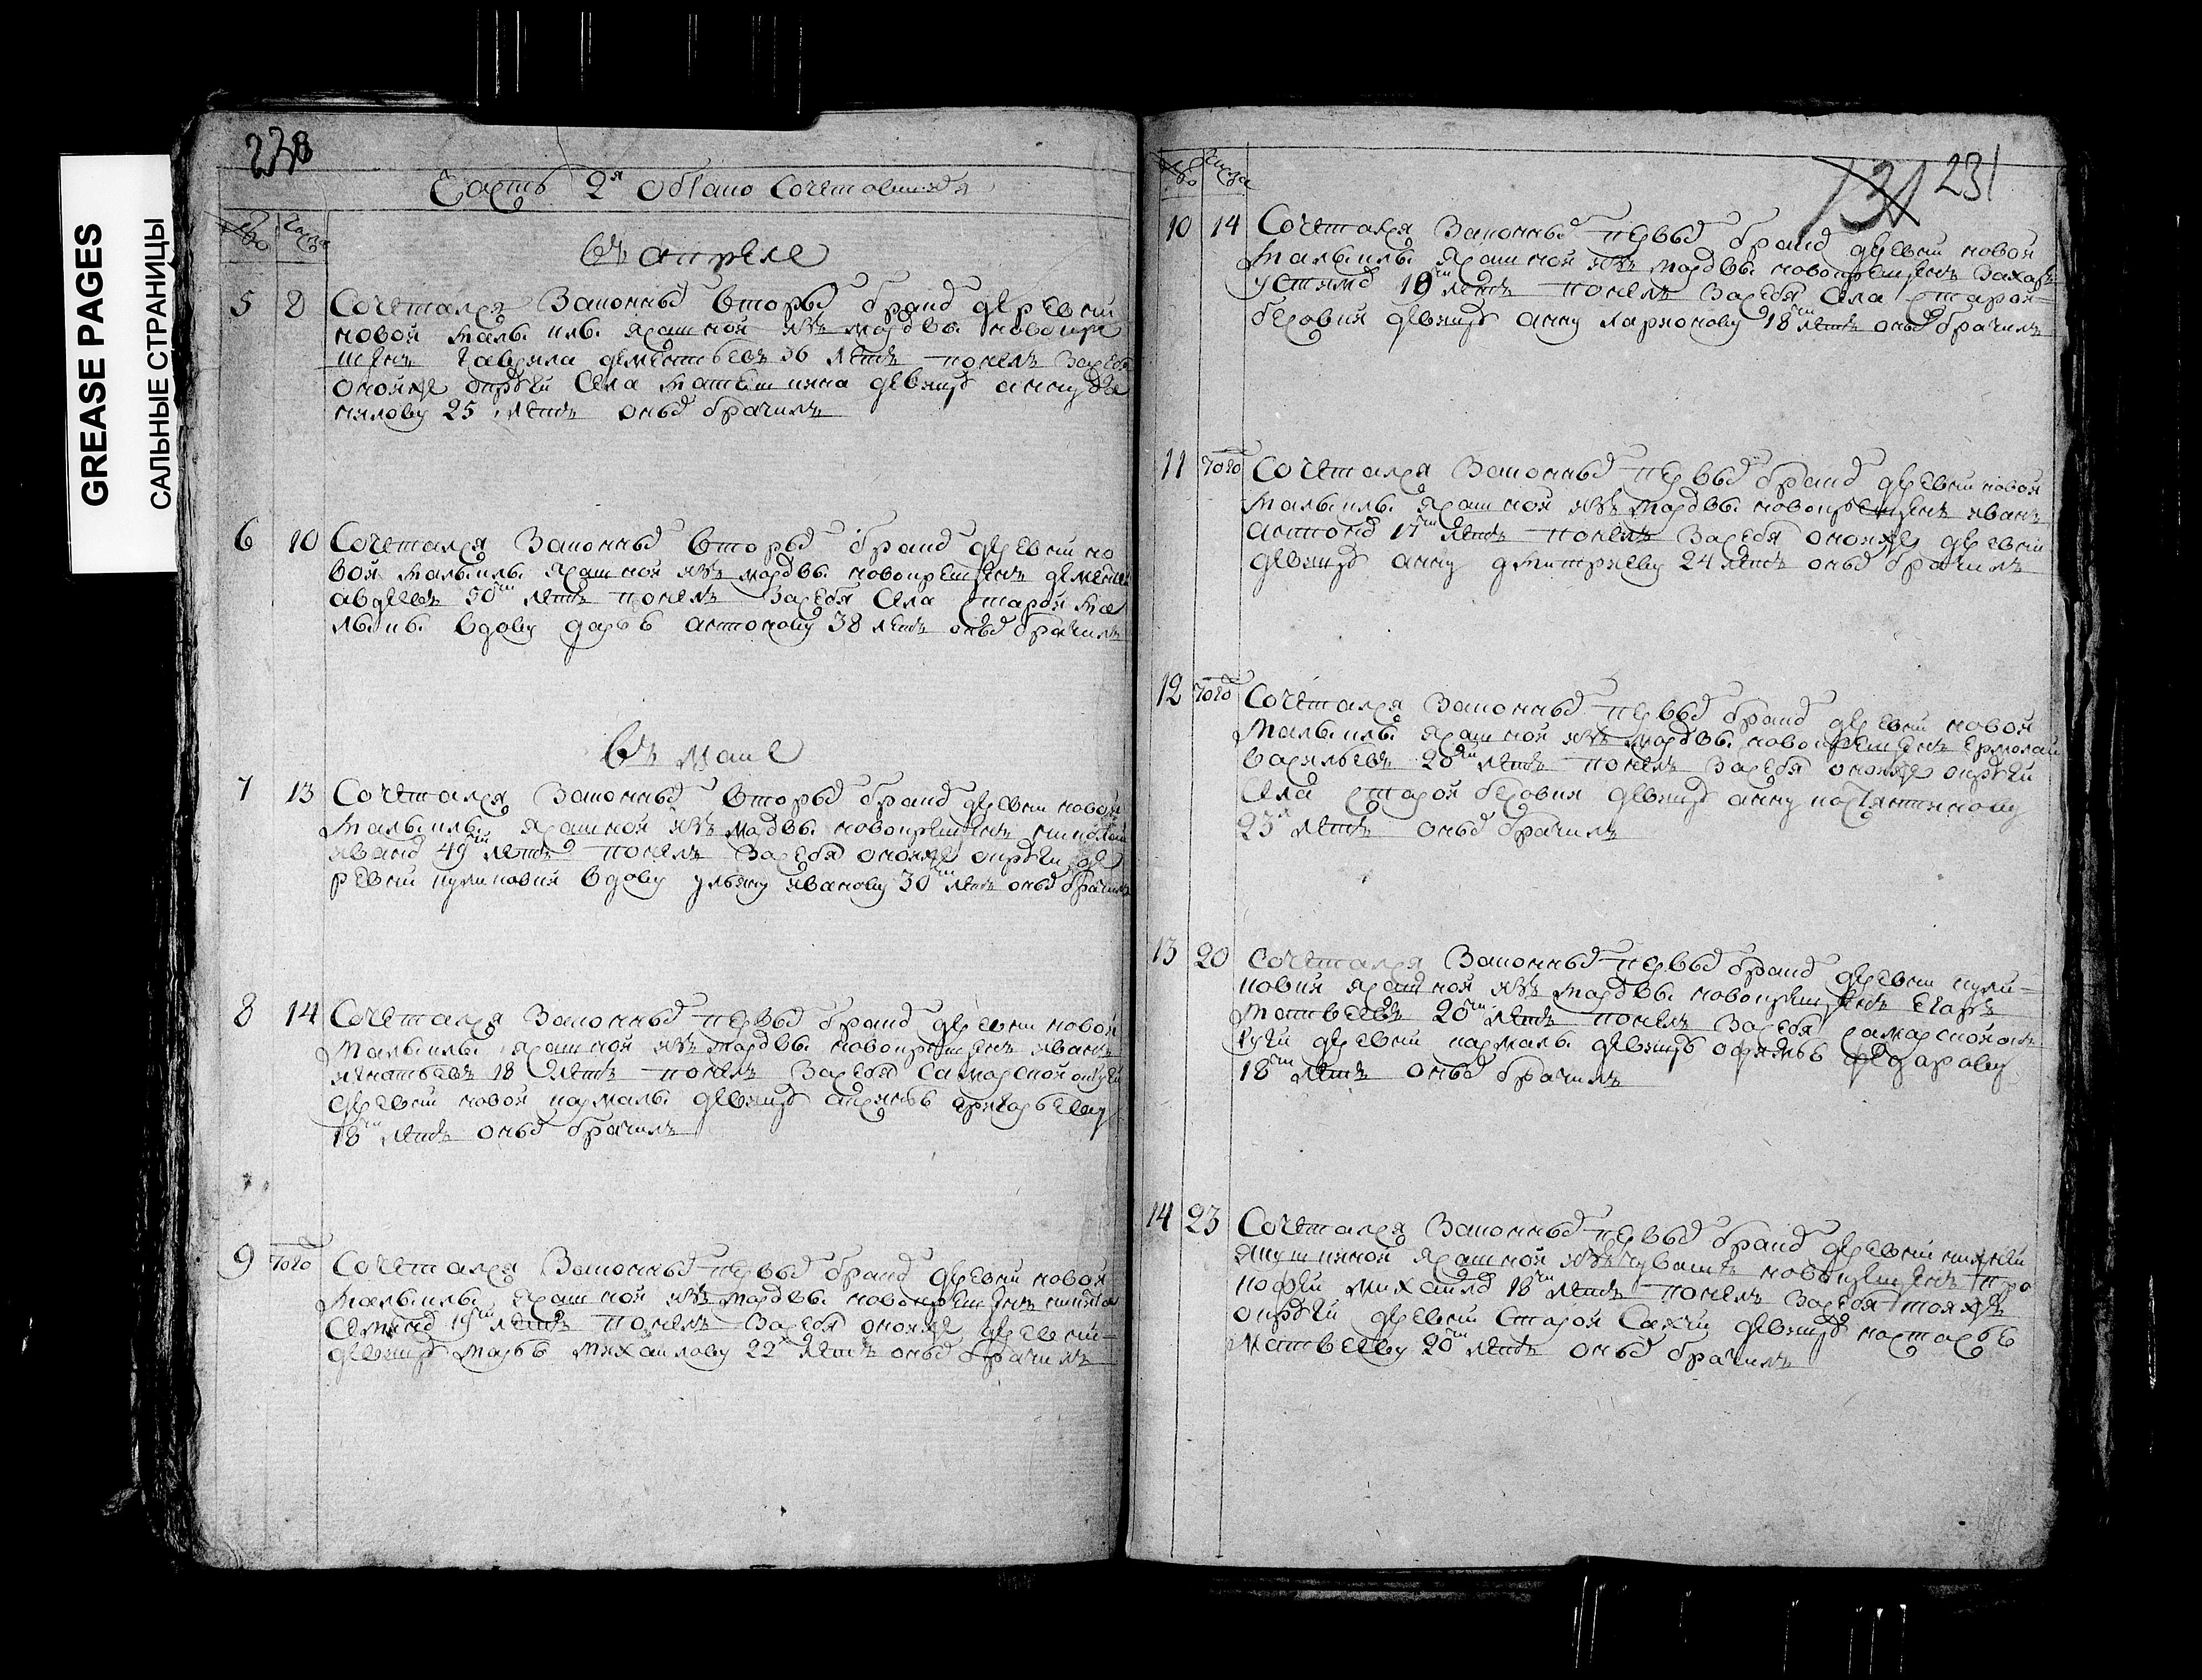 GREASE PAGES
САЛЬНЫЕ СТРАНИЦЫ
Часть 2я о бракосочетавшихся
въ апреле
5 8 Сочетался законнымъ вторымъ бракомъ деревни
новой ясашной изъ мордвы новокре
щенъ гаврила дементьевъ 36 летъ понелъ засебя
оной же округи села девицу анну да
нилову 25 летъ онымъ брачилъ
6 10 Сочетался законнымъ вторымъ бракомъ деревни но
вой малыклы ясашной изъ мордвы новокрещенъ дементей
авдеевъ 50ти летъ понелъ засебя села старой ма
лыклы вдову дарью антонову 38 летъ онымъ брачилъ
въ маие
7 13 Сочетался законнымъ вторымъ бракомъ деревни новой
малыклы ясашной изъ мордвы новокрещенъ николай
ивановъ 49ти летъ понелъ засебя оной же округи де
ревни вдову ульяну иванову 30ти летъ онымъ брачилъ
8 14 Сочетался законнымъ первымъ бракомъ деревни новой
малыклы ясашной изъ мордвы новокрещенъ иванъ
игнатьевъ 18 летъ понелъ засебя самарской округи
деревни новой кармалы девицу аксинью григорьеву
18ти летъ онымъ брачилъ
9 того Сочетался законнымъ первымъ бракомъ деревни новой
малыклы ясашной изъ мордвы новокрещенъ никифоръ
семеновъ 19ти летъ понелъ засебя оной же деревни
девицу марью михаилову 22х летъ онымъ брачилъ
131 231
10 14 Сочетался законнымъ первымъ бракомъ деревни новой
малыклы ясашной изъ мордвы новокрещенъ захаръ
устимовъ 19ти летъ понелъ засебя села старой
девицу анну харионову 18ти летъ онымъ брачилъ
11 того Сочетался законнымъ первымъ бракомъ деревни новой
малыклы ясашной изъ мордвы новокрещенъ иванъ
антоновъ 17ти летъ понелъ засебя оной же деревни
девицу анну дмитриеву 24 летъ онымъ брачилъ
12 того Сочетался законнымъ первымъ бракомъ деревни новой
малыклы ясашной изъ мордвы новокрещенъ ермолай
васильевъ 20ти летъ понелъ засебя оной же округи
села старой девицу анну костянтинову
23х летъ онымъ брачилъ
13 20 Сочетался законнымъ первымъ бракомъ деревни
ясашной изъ мордвы новокрещенъ егоръ
матвеевъ 20ти летъ понелъ засебя самарской ок
руги деревни кармалы девицу офимью федарову
18ти летъ онымъ брачилъ
14 23 Сочетался законнымъ первымъ бракомъ деревни нижней
якушкиной ясашной изъ чувашъ новокрещенъ про
кофей михаиловъ 18ти летъ понелъ засебя тоя жъ
округи деревни старой девицу настасью
матвееву 20ти летъ онымъ брачилъ